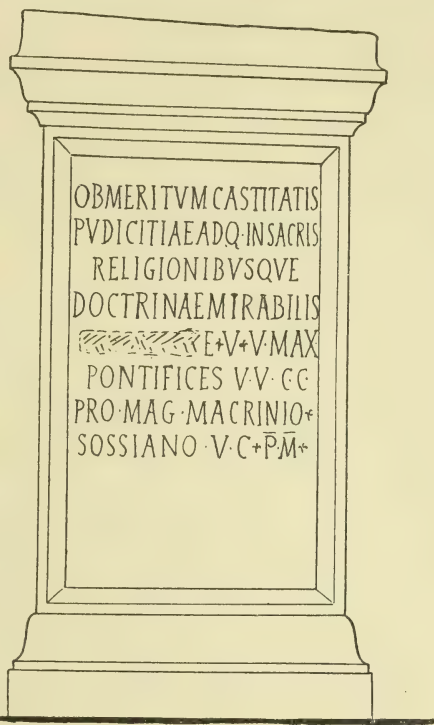 OBMERITVM CASTITATIS
PVDICITIAE ADQ·IN SACRIS
RELIGIONIBVSQVE
DOCTRINAE MIRABILIS
E+V+V·MAX
PONTIFICES V·V·C·C·
PRO·MAG·MACRINIO+
SOSSIANO·V·C+P̅·M̅+